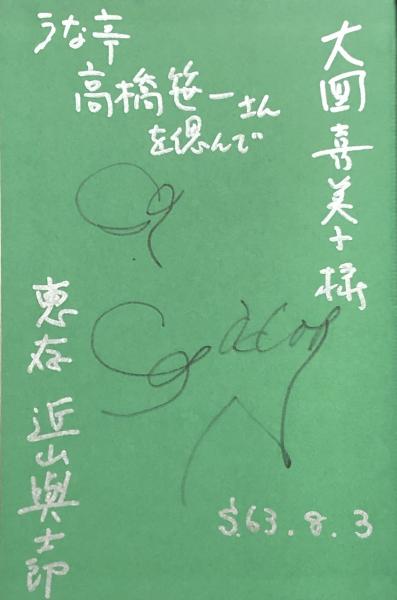 大国喜美子様
うな亭
高橋笹一さん
を偲んで
恵存 近山與士郎
S.63.8.3